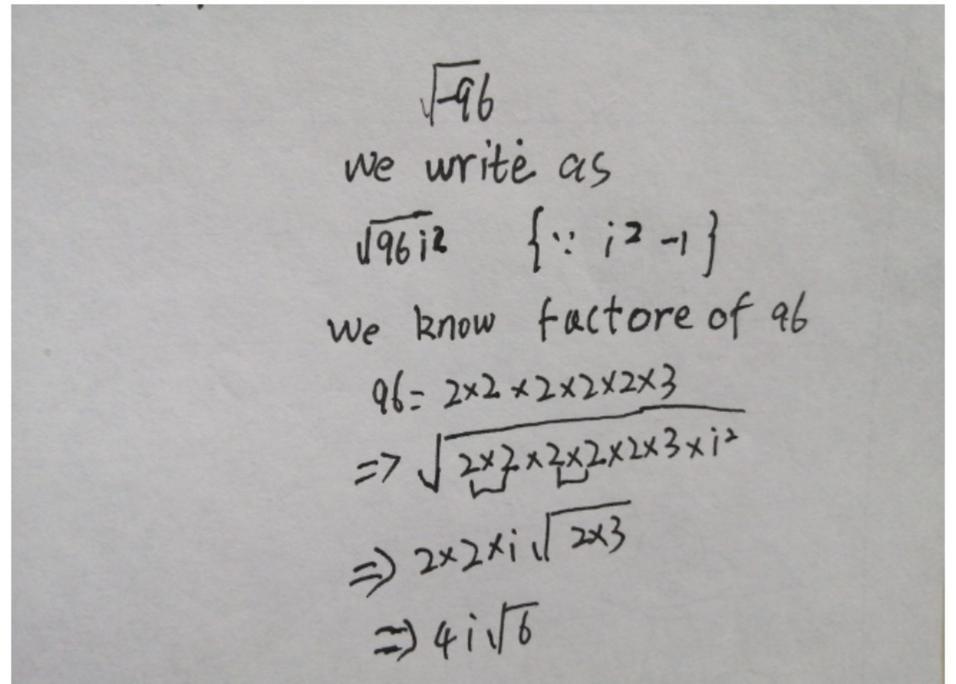 √-96
we write as
√96i² {∵ i² -1}
we know factore of 96
96= 2×2×2×2×2×3
=> √2×2×2×2×2×3×i²
=> 2×2×i√2×3
=> 4i√6